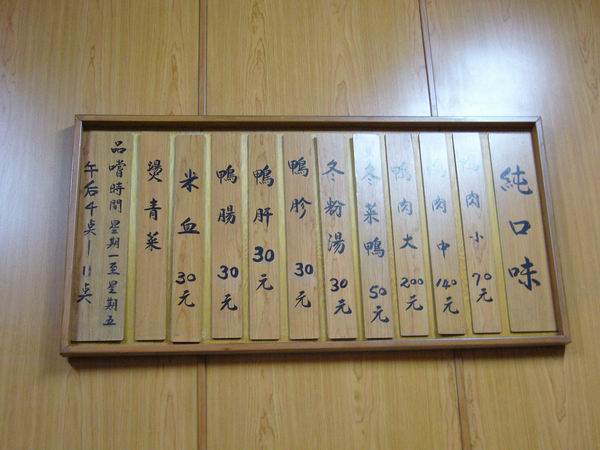 純口味
鴨肉小 70元
鴨肉中 140元
鴨肉大 200元
冬菜鴨 50元
冬粉湯 30元
鴨胗 30元
鴨肝 30元
鴨腸 30元
米血 30元
燙青菜
品嚐時間 星期一至星期五
午后4点—11点